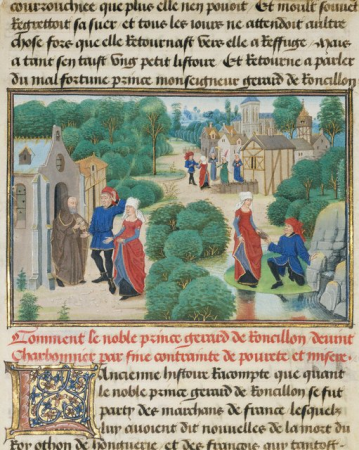 courrouchiee que plus elle nen pouoit Et moult souuet
Regrettoit sa suer et tous les iours ne attendoit aultre
chose fors que elle Retournast vers elle a Reffuge Mais
a tant sen taist lystoire Et Retourne a parler
du mal fortune prince monseigneur gerard de Roncillon
Comment le noble prince gerard de Roncillon deuint
Charbonnier par fine contrainte de pourete et misere
Lancienne hystoire Racompte que quant
le noble prince gerard de Roncillon se fut
party des marchans de france lesquelz
luy auoient dit nouuelles de la mort du
Roy othon de honguerie et des francois